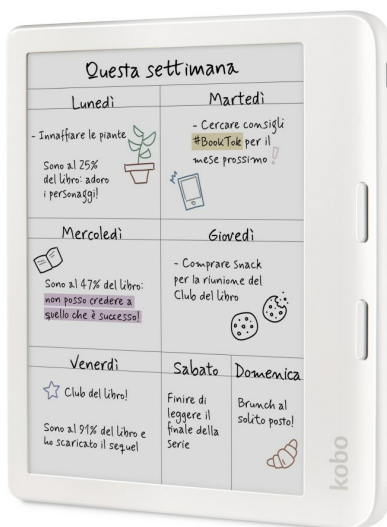 Questa settimana
Lunedì
- Innaffiare le piante
Sono al 25%
del libro: adoro
i personaggi!
Martedì
- Cercare consigli
#BookTok per il
mese prossimo!
Mercoledì
Sono al 47% del libro:
non posso credere a
quello che è successo!
Giovedì
- Comprare snack
per la riunione del
Club del libro
Venerdì
Club del libro!
Sono al 91% del libro e
ho scaricato il sequel
Sabato
Finire di
leggere il
finale della
serie
Domenica
Brunch al
solito posto!
kobo